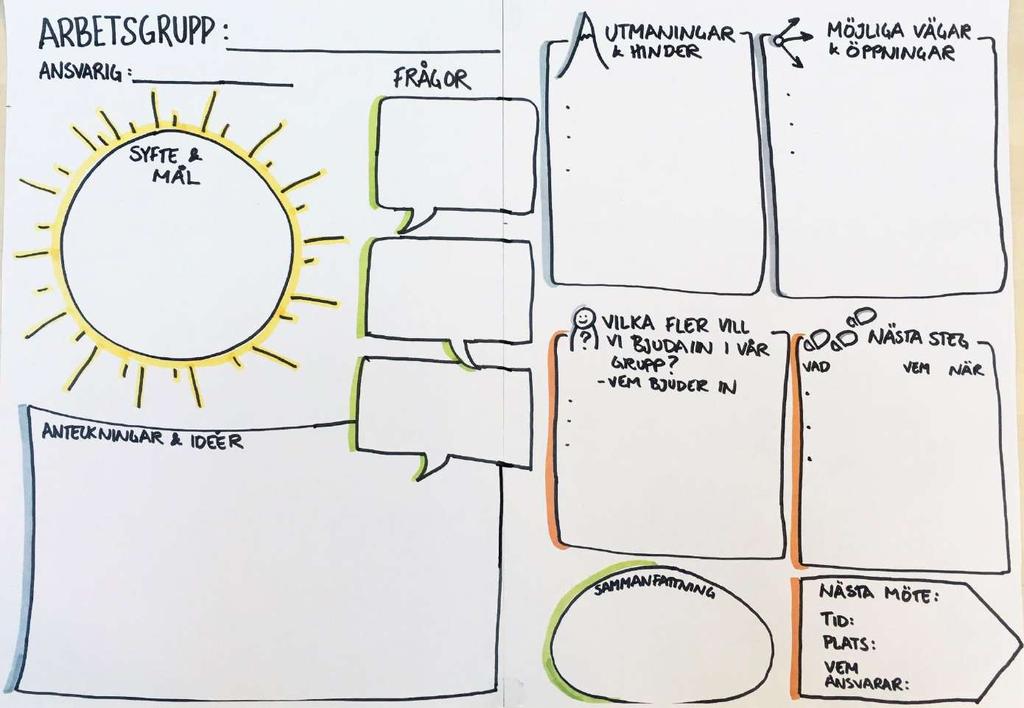 ARBETSGRUPP:
ANSVARIG:
SYFTE &
MÅL
FRÅGOR
ANTECKNINGAR & IDÉER
UTMANINGAR
& HINDER
MÖJLIGA VÄGAR
& ÖPPNINGAR
?
VILKA FLER VILL
VI BJUDA IN I VÅR
GRUPP?
- VEM BJUDER IN
NÄSTA STEG
VAD VEM NÄR
SAMMANFATTNING
NÄSTA MÖTE:
TID:
PLATS:
VEM
ANSVARAR: